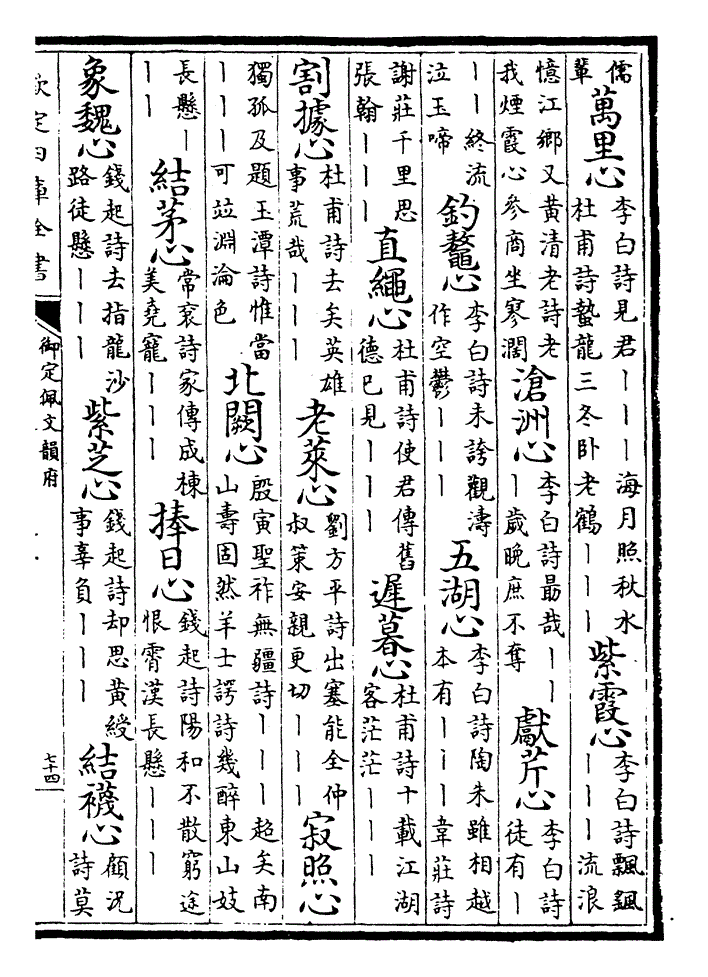 儒輩萬里心李白詩見君丨丨丨海月照秋水杜甫詩蟄龍三冬卧老鶴丨丨丨紫霞心李白詩飄颻丨丨丨流浪
憶江鄉又黄清老詩老我煙霞心參商坐寥濶滄洲心李白詩最哉丨丨丨歲晚庶不奪獻芹心李白詩徒有丨
丨丨終流泣玉啼釣鼇心李白詩未誇觀濤作空鬱丨丨丨五湖心李白詩陶朱雖相越本有丨丨丨韋莊詩
謝莊千里思張翰丨丨丨直繩心杜甫詩使君傳舊德已見丨丨丨遲暮心杜甫詩十載江湖客茫茫丨丨丨
割據心杜甫詩去矣英雄事荒哉丨丨丨老萊心劉方平詩出塞能全仲叔策安親更切丨丨丨寂照心
獨孤及題玉潭詩惟當丨丨丨可竝淵淪色北闕心殷寅聖祚無疆詩丨丨丨超矣南山壽固然羊士諤詩幾醉東山妓
長懸丨丨丨結茅心常袞詩家傳成棟美堯寵丨丨丨捧日心錢起詩陽和不散窮途恨霄漢長懸丨丨丨
象魏心錢起詩去指龍沙路徒懸丨丨丨紫芝心錢起詩却思黄綬事辜負丨丨丨結襪心顧況詩莫
欽定四庫全書
御定佩文韻府
七十四